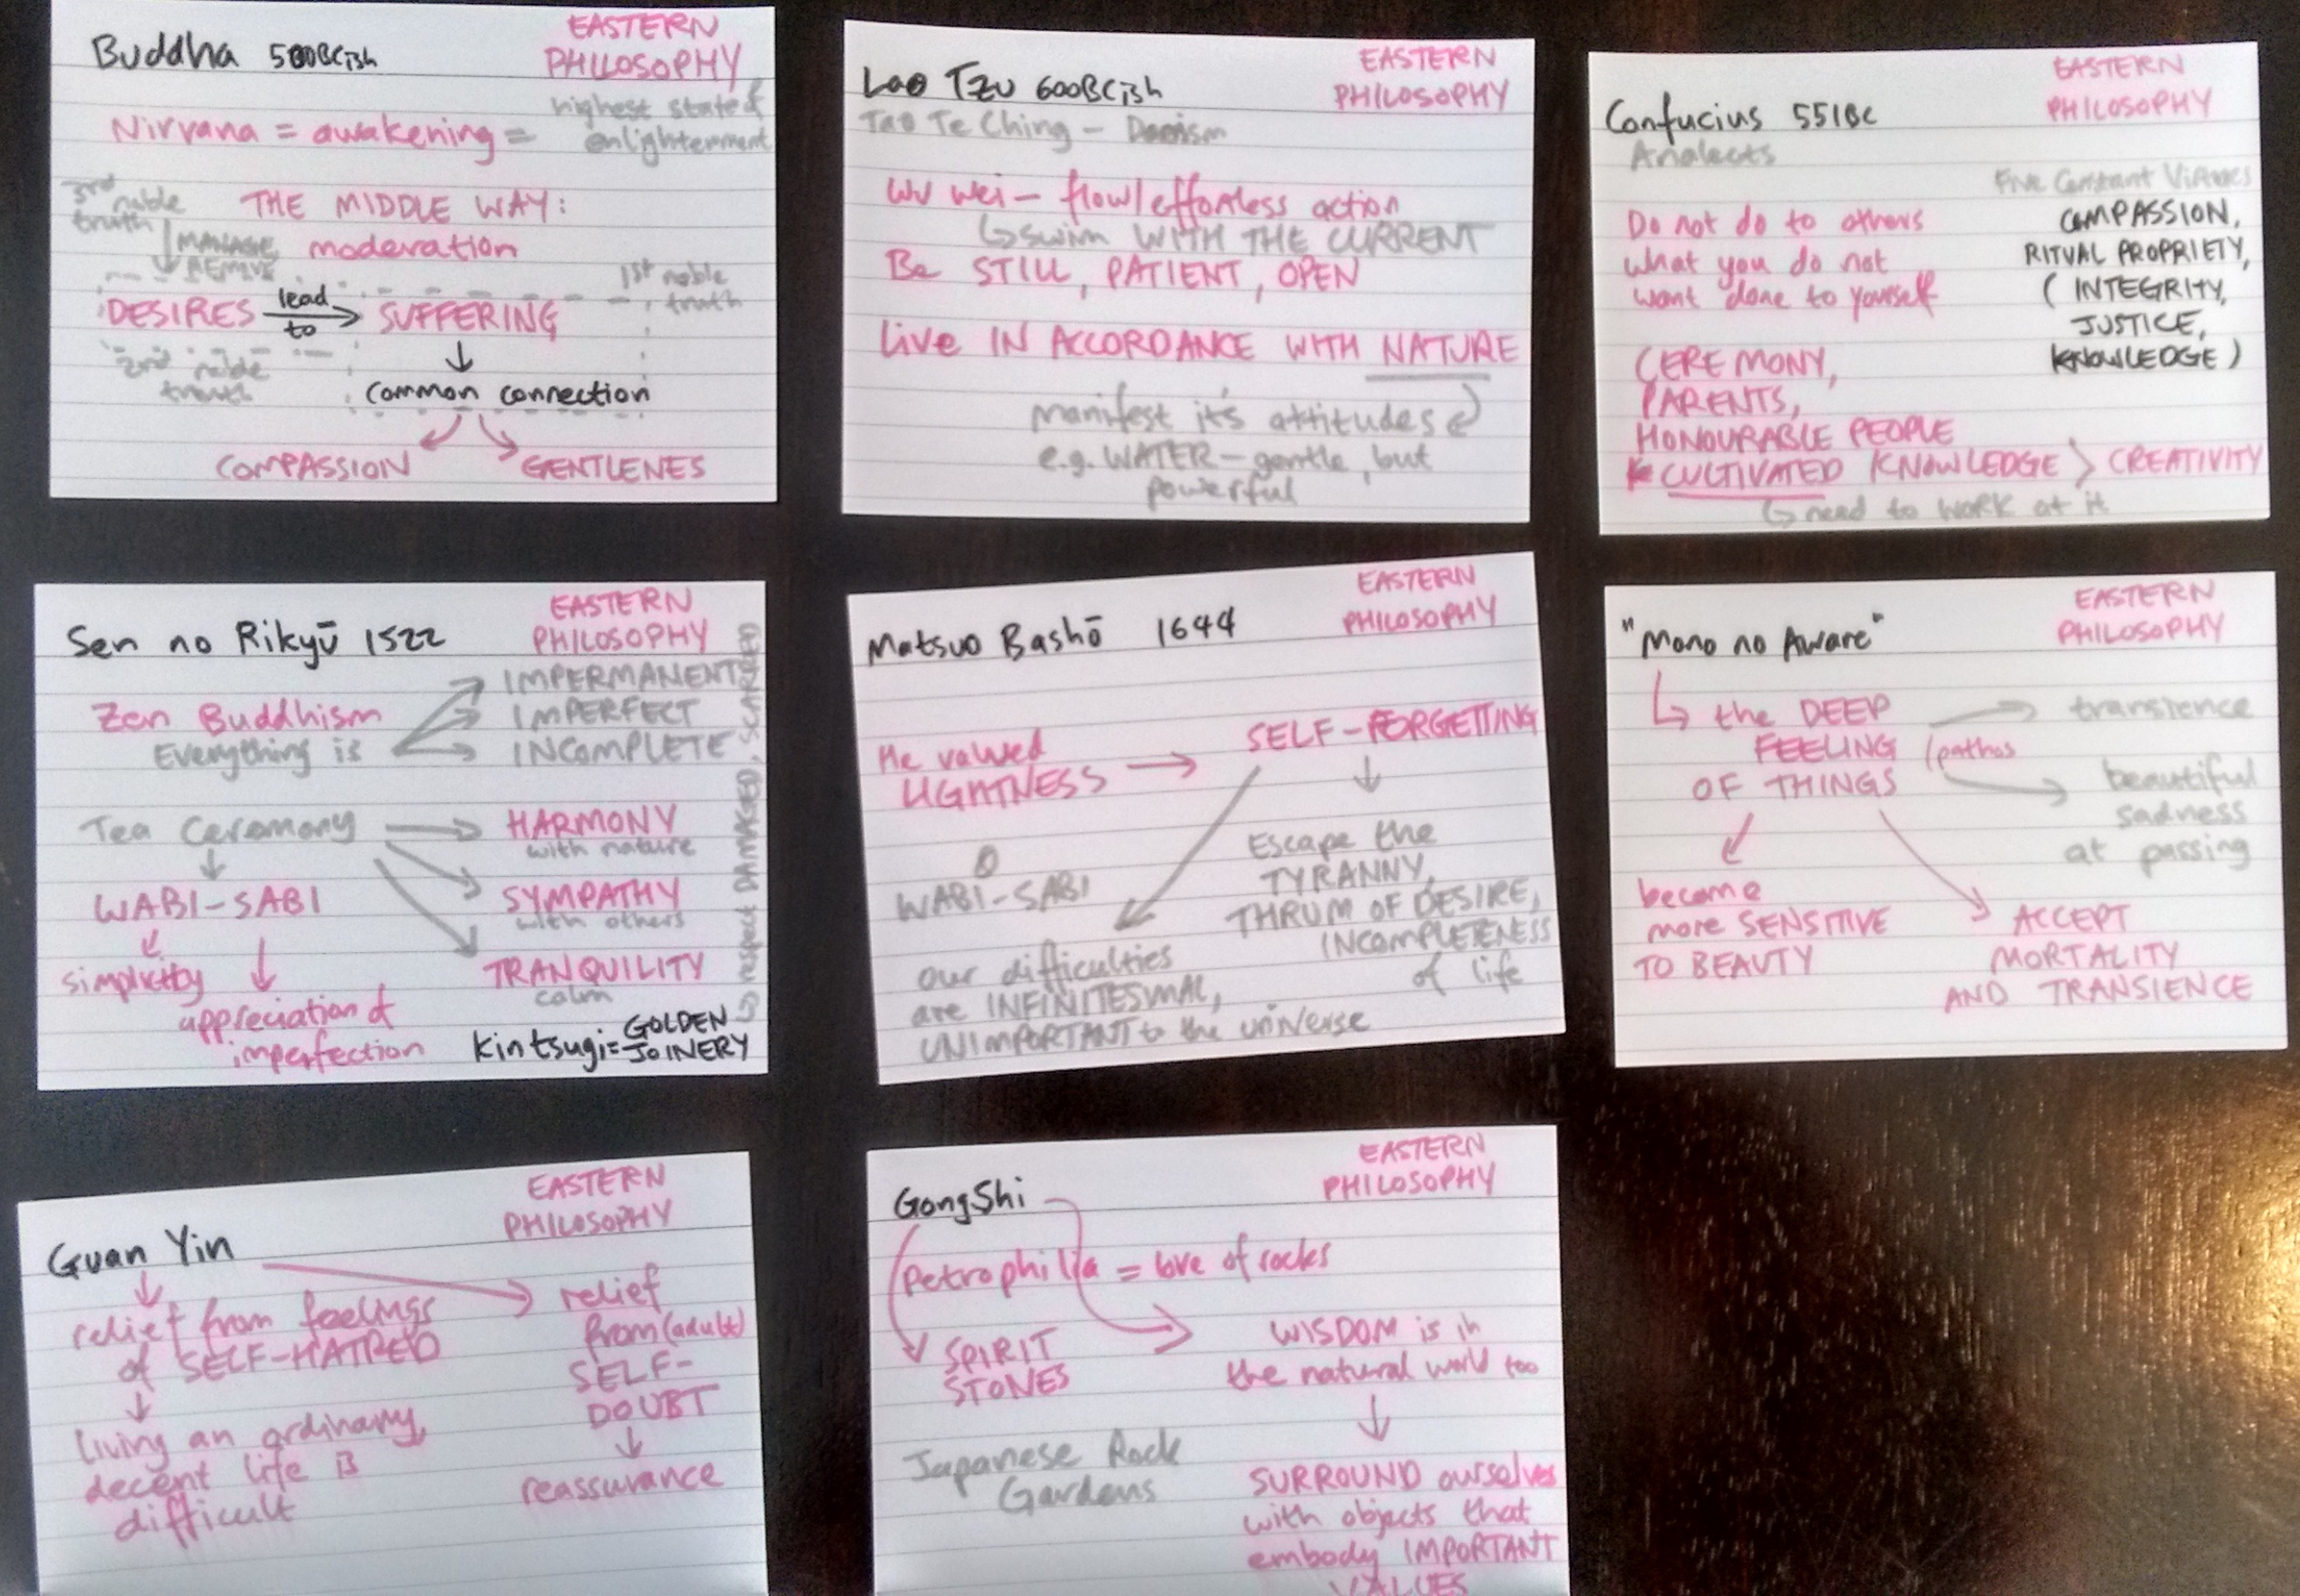 Buddha 500BCish
EASTERN
PHILOSOPHY
Nirvana = awakening =
highest state of
enlightenment
3rd noble
truth
THE MIDDLE WAY:
MANAGE
REMOVE
moderation
1st noble
truth
DESIRES lead
to
SUFFERING
2nd noble
truth
common connection
COMPASSION
GENTLENES
Lao Tzu 600BCish
EASTERN
PHILOSOPHY
Tao Te Ching - Daoism
WU wei - flow/effortless action
swim WITH THE CURRENT
Be STILL, PATIENT, OPEN
Live IN ACCORDANCE WITH NATURE
manifest it's attitudes
e.g. WATER - gentle, but
powerful
Confucius 551BC
EASTERN
PHILOSOPHY
Analects
Five Constant Virtues
COMPASSION,
RITUAL PROPRIETY,
(INTEGRITY,
JUSTICE,
KNOWLEDGE)
Do not do to others
what you do not
want done to yourself
CEREMONY,
PARENTS,
HONOURABLE PEOPLE
CULTIVATED KNOWLEDGE > CREATIVITY
need to work at it
Sen no Rikyū 1522
EASTERN
PHILOSOPHY
Zen Buddhism
Everything is
IMPERMANENT
IMPERFECT
INCOMPLETE
respect DAMAGED, SCARRED
Tea Ceremony
HARMONY
with nature
SYMPATHY
with others
TRANQUILITY
calm
WABI-SABI
simplicity
appreciation of
imperfection
Kintsugi = GOLDEN
JOINERY
Matsuo Bashō 1644
EASTERN
PHILOSOPHY
He valued
LIGHTNESS
SELF-FORGETTING
WABI-SABI
Escape the
TYRANNY,
THRUM OF DESIRE,
INCOMPLETENESS
of life
our difficulties
are INFINITESIMAL,
UNIMPORTANT to the universe
"Mono no Aware"
EASTERN
PHILOSOPHY
the DEEP
FEELING
OF THINGS
/pathos
transience
beautiful
sadness
at passing
become
more SENSITIVE
TO BEAUTY
ACCEPT
MORTALITY
AND TRANSIENCE
Guan Yin
EASTERN
PHILOSOPHY
relief from feelings
of SELF-HATRED
living an ordinary,
decent life is
difficult
relief
from (adult)
SELF-
DOUBT
reassurance
GongShi
EASTERN
PHILOSOPHY
Petrophilia = love of rocks
SPIRIT
STONES
WISDOM is in
the natural world too
Japanese Rock
Gardens
SURROUND ourselves
with objects that
embody IMPORTANT
VALUES